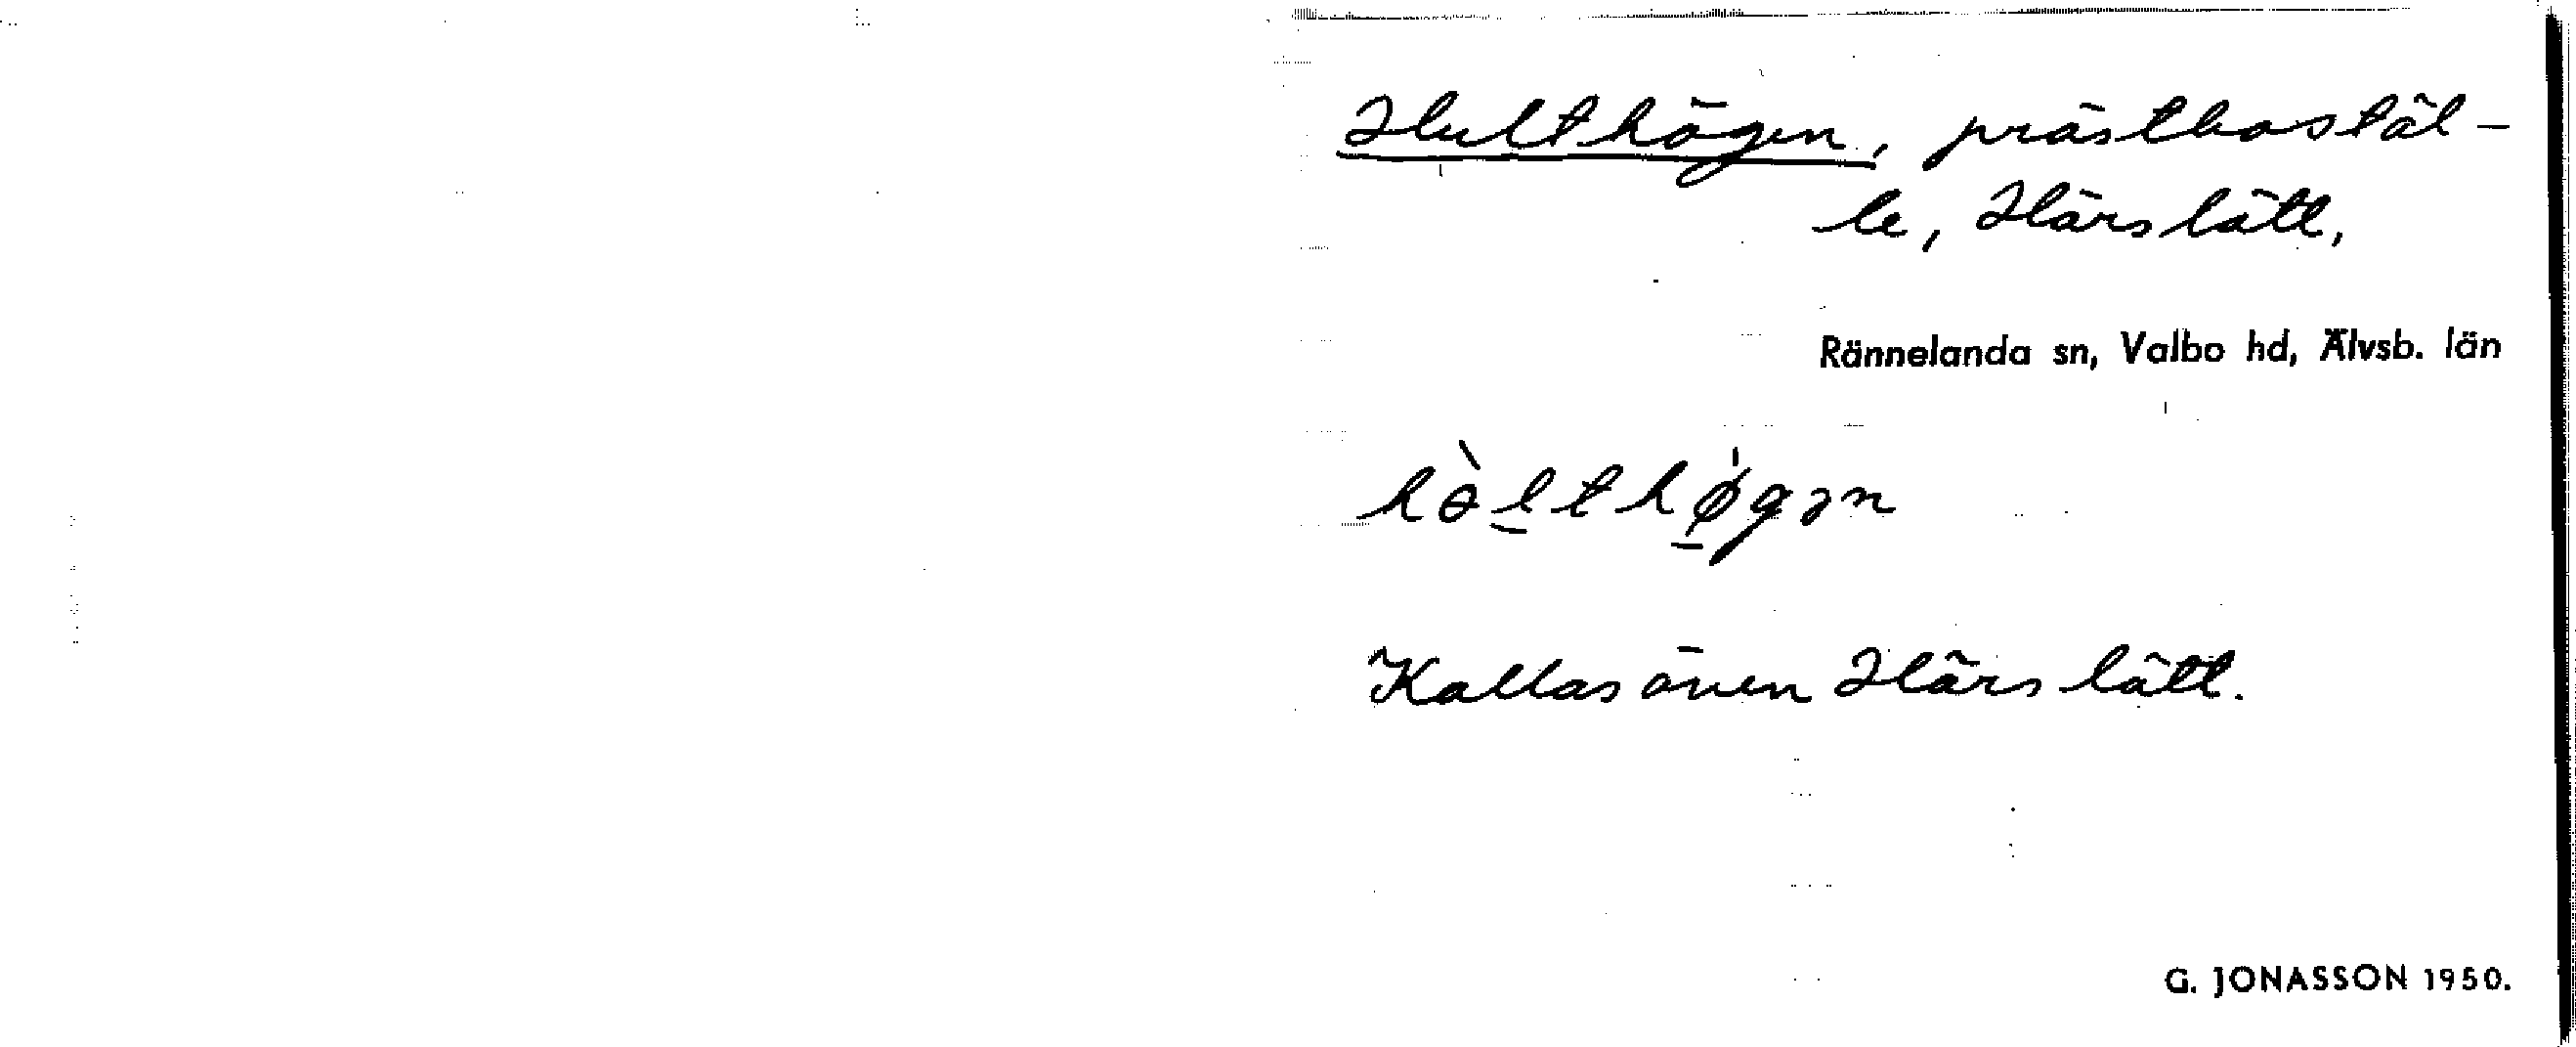 Hulthögen, prästbostäl-
le, Härslätt,
Rännelanda sn, Valbo hd, Älvsb. län
hɵ̀lthø̀gən
Kallas även Härslätt.
G. JONASSON 1950.